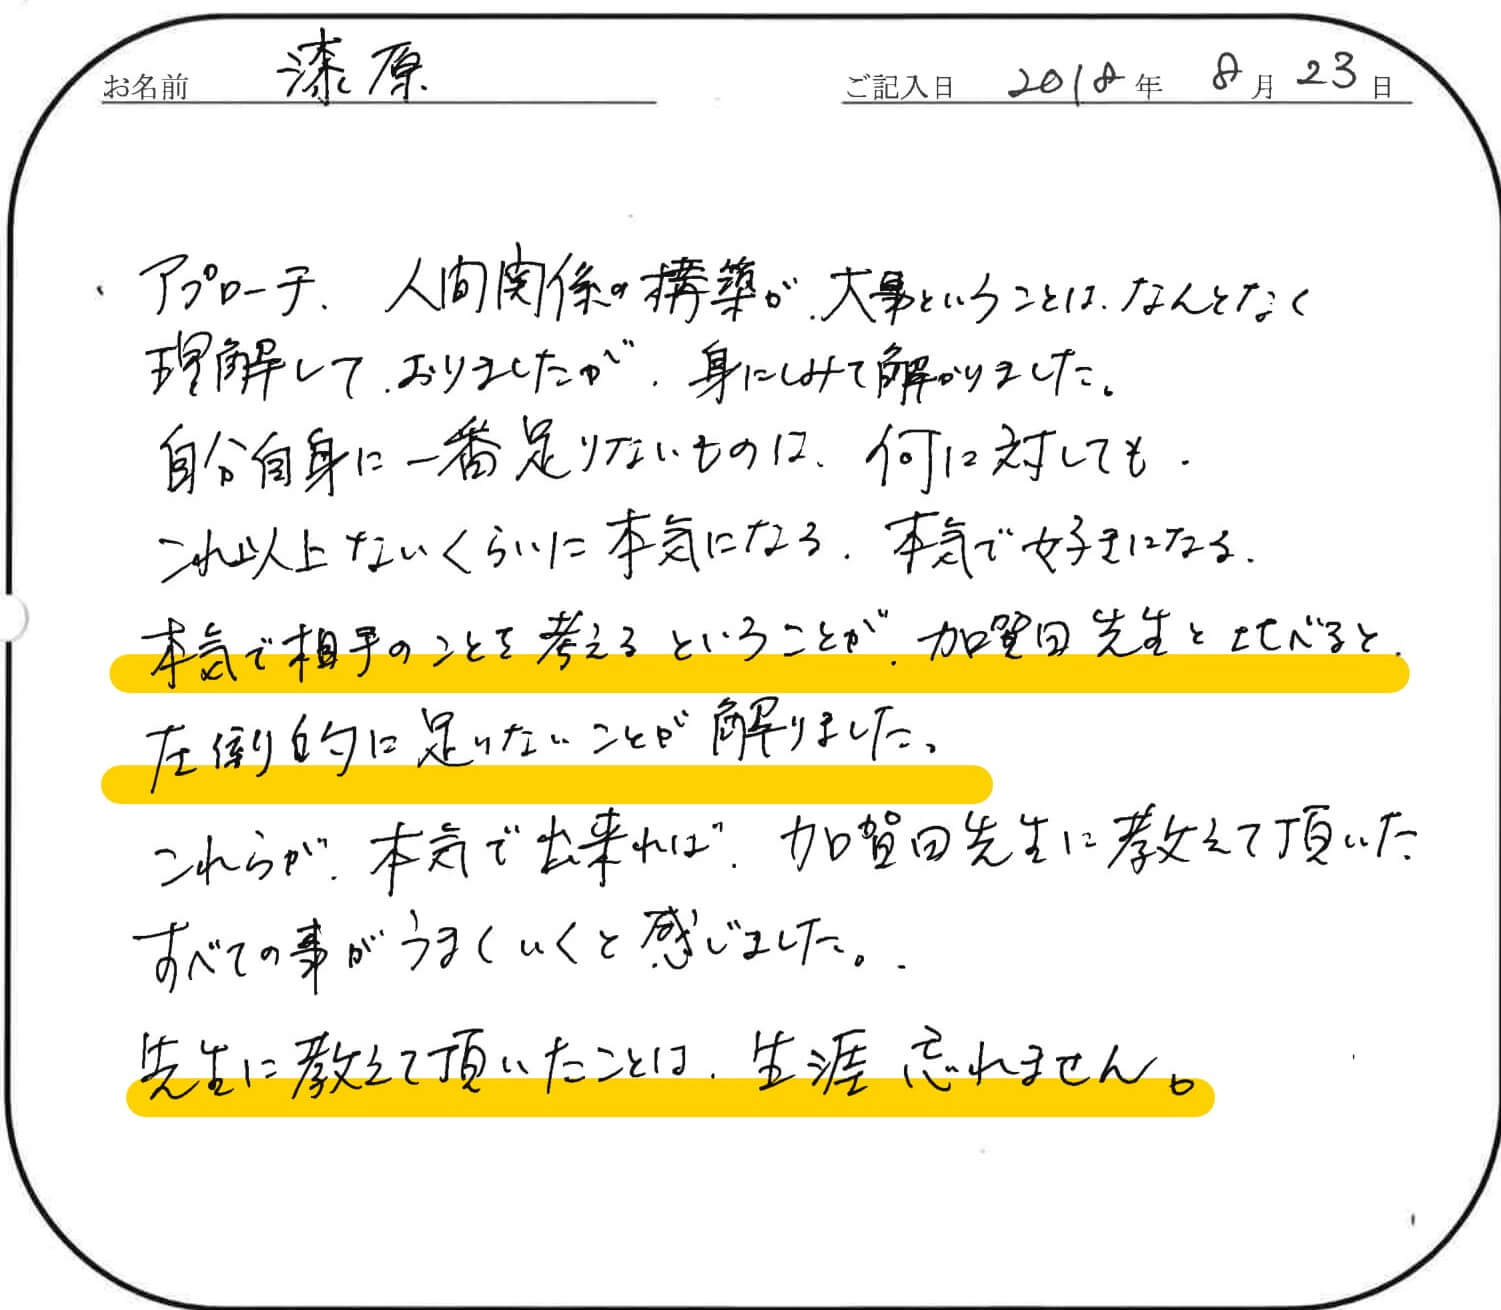 お名前 漆原 ご記入日 2018年 8月23日
・アプローチ、人間関係の構築が、大事ということは、なんとなく
理解して、おりましたが、身にしみて解かりました。
自分自身に一番足りないものは、何に対しても、
これ以上ないくらいに本気になる、本気で好きになる、
本気で相手のことを考えるということが、加賀田先生と比べると、
圧倒的に足りないことが解りました。
これらが、本気で出来れば、加賀田先生に教えて頂いた
すべての事がうまくいくと感じました。
先生に教えて頂いたことは、生涯忘れません。